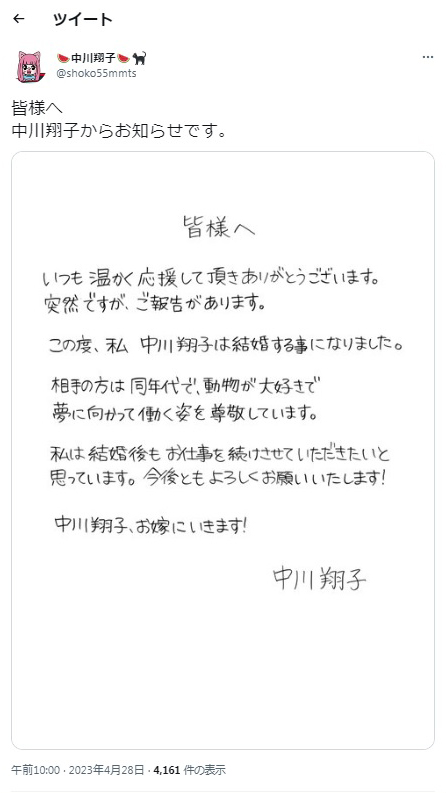 ← ツイート
🍉中川翔子🍉🐈‍⬛
@shoko55mmts
…
皆様へ
中川翔子からお知らせです。
皆様へ
いつも温かく応援して頂きありがとうございます。
突然ですが、ご報告があります。
この度、私 中川翔子は結婚する事になりました。
相手の方は同年代で、動物が大好きで
夢に向かって働く姿を尊敬しています。
私は結婚後もお仕事を続けさせていただきたいと
思っています。今後ともよろしくお願いいたします!
中川翔子、お嫁にいきます!
中川翔子
午前10:00 · 2023年4月28日 · 4,161 件の表示